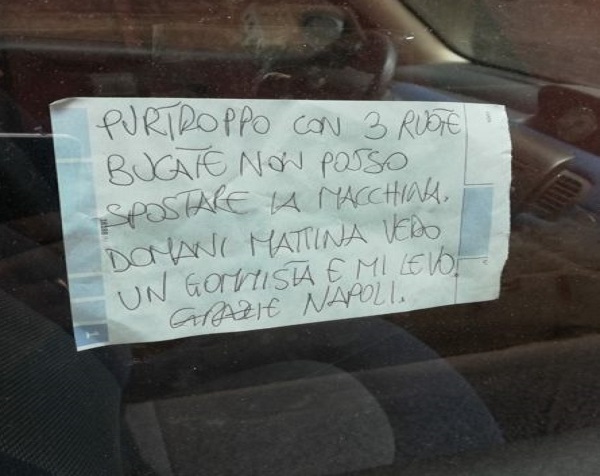 PURTROPPO CON 3 RUOTE
BUCATE NON POSSO
SPOSTARE LA MACCHINA.
DOMANI MATTINA VEDO
UN GOMMISTA E MI LEVO.
GRAZIE NAPOLI.